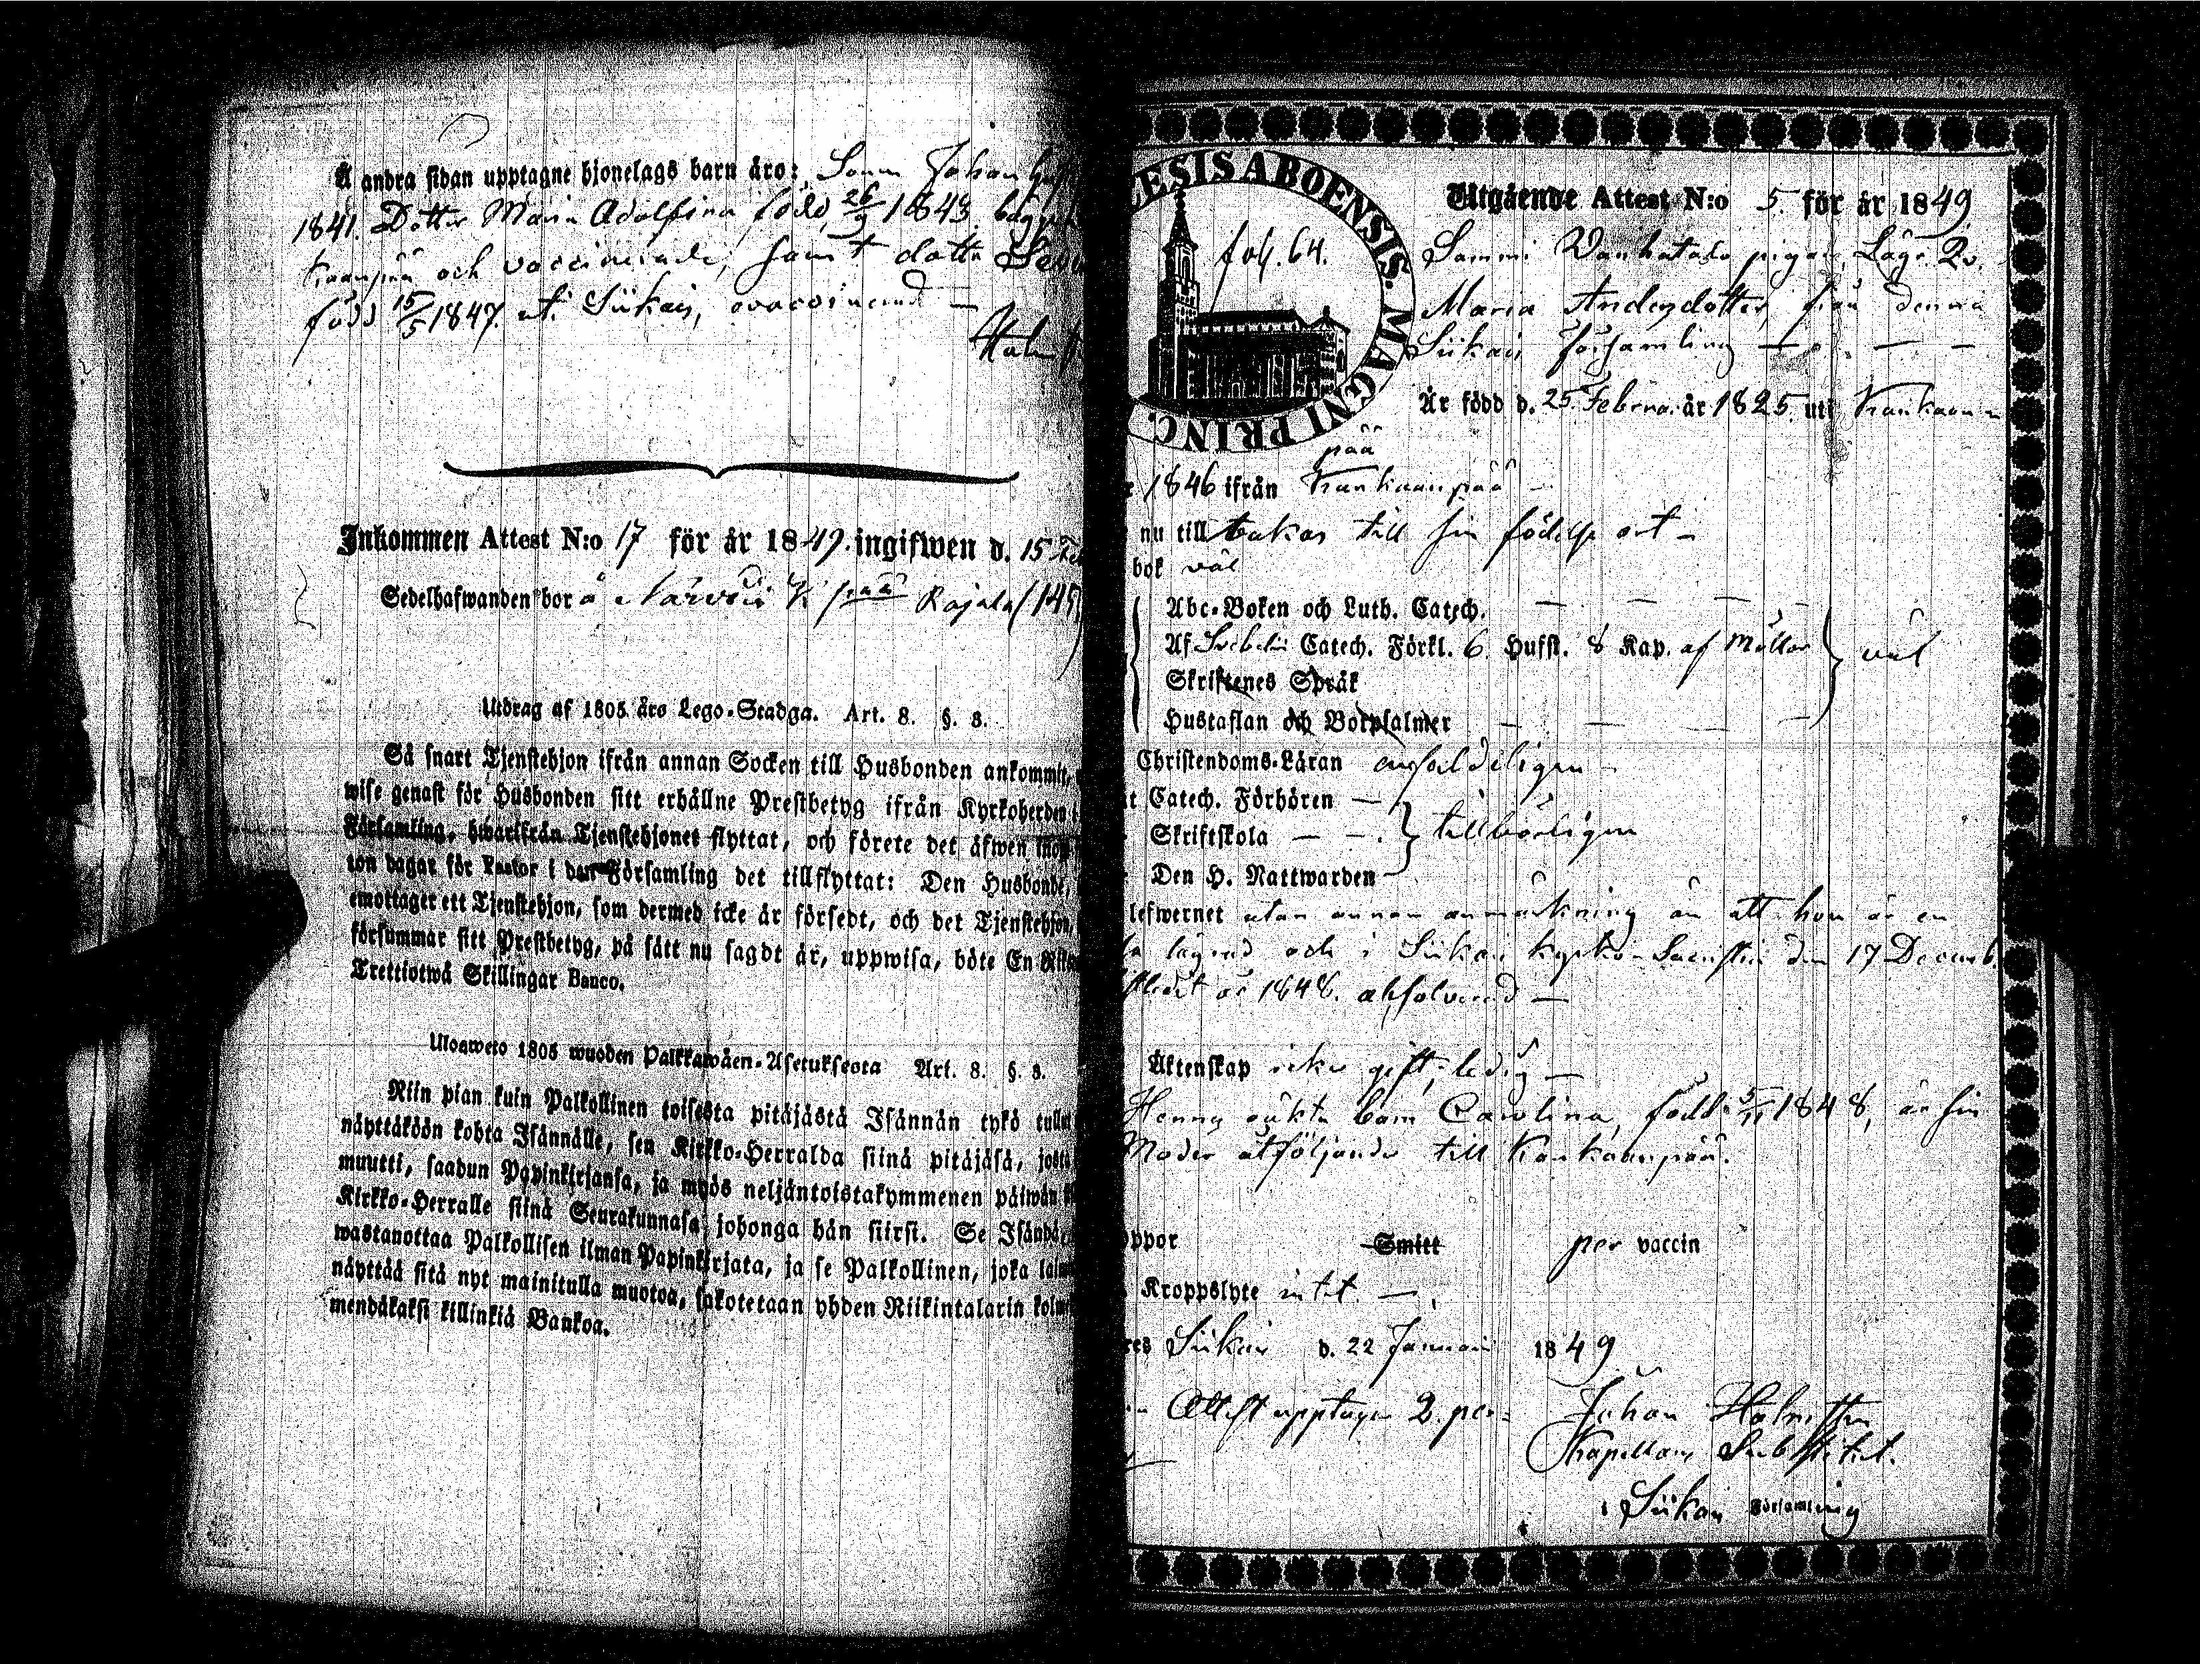 Å andra sidan upptagne hjonelags barn äro: Sonen Johan
1841. Dotter Maria Adolfina född 26/9 1843, bägge
Kaanpää och vaccinerade, samt dotter
född 15/5 1847. at. Siikais, ovaccinerad —
Inkommen Attest N:o 17 för år 1849. ingifwen d. 15
Sedelhafwanden bor å Närwii K pää Rajala
Utdrag af 1805 års Lego-Stadga. Art. 8. §. 8.
Så snart Tjenstehjon ifrån annan Socken till Husbonden ankommit,
wise genast för Husbonden sitt erhållne Prestbetyg ifrån Kyrkoherden
Församling, hwarifrån Tjenstehjonet flyttat, och förete det äfwen inom
ton dagar för Pastor i den Församling det tillflyttat: Den Husbonde,
emottager ett Tjenstehjon, som dermed icke är försedt, och det Tjenstehjon,
försummar sitt Prestbetyg, på sätt nu sagdt är, uppwisa, böte En
Trettiotwå Skillingar Banco.
Ulosweto 1805 wuoden Palkkawäen-Asetuksesta Art. 8. §. 8.
Niin pian kuin Palkollinen toisesta pitäjästä Isännän tykö tullut
näyttäköön kohta Isännälle, sen Kirkko-Herralda siinä pitäjäsä, josta
muutti, saadun Papinkirjansa, ja myös neljäntoistakymmenen päiwän
Kirkko-Herralle siinä Seurakunnasa johonga hän siirsi. Se Isändä,
wastanottaa Palkollisen ilman Papinkirjata, ja se Palkollinen, joka
näyttää sitä nyt mainitulla muotoa, sakotetaan yhden Riikintalarin
mendäkaksi killinkiä Bankoa.
ESIS ABOENSIS. MAGNI PRINC.
fol. 64.
Utgående Attest N:o 5. för år 1849
Sammi Wanhatalo pigan, Läg. Qv.
Maria Andersdotter, från denna
Siikais församling — — —
Är född d. 25 Februa. år 1825 uti Kankaan-
pää
1846 ifrån Kankaanpää —
nu till bakas till sin födelse ort —
bok väl
Abc-Boken och Luth. Catech. — — — —
Af Svebelii Catech. Förkl. 6. Hufst. 8 Kap. af Möller väl
Skriftenes Språk
Hustaflan och Botpsalmer — — — —
Christendoms-Läran enfaldeligen —
Catech. Förhören —
Skriftskola — — tillbörligen
Den H. Nattwarden —
lefwernet utan annan anmärkning än att hon är en
lägrad och i Siikais kyrko-Sacristia den 17 Decemb.
år 1848. absolverad —
Äktenskap icke gift, ledig —
Hennes oäkta barn Carolina, född 5/11 1848, är sin
Moder åtföljande till Kankaanpää.
oppor Smitt per vaccin
Kroppslyte intet —
Siikais d. 22 Januari 1849
Attest upptager 2. per-
Johan Holmsten
Kapellans Substitut.
i Siikais Församling